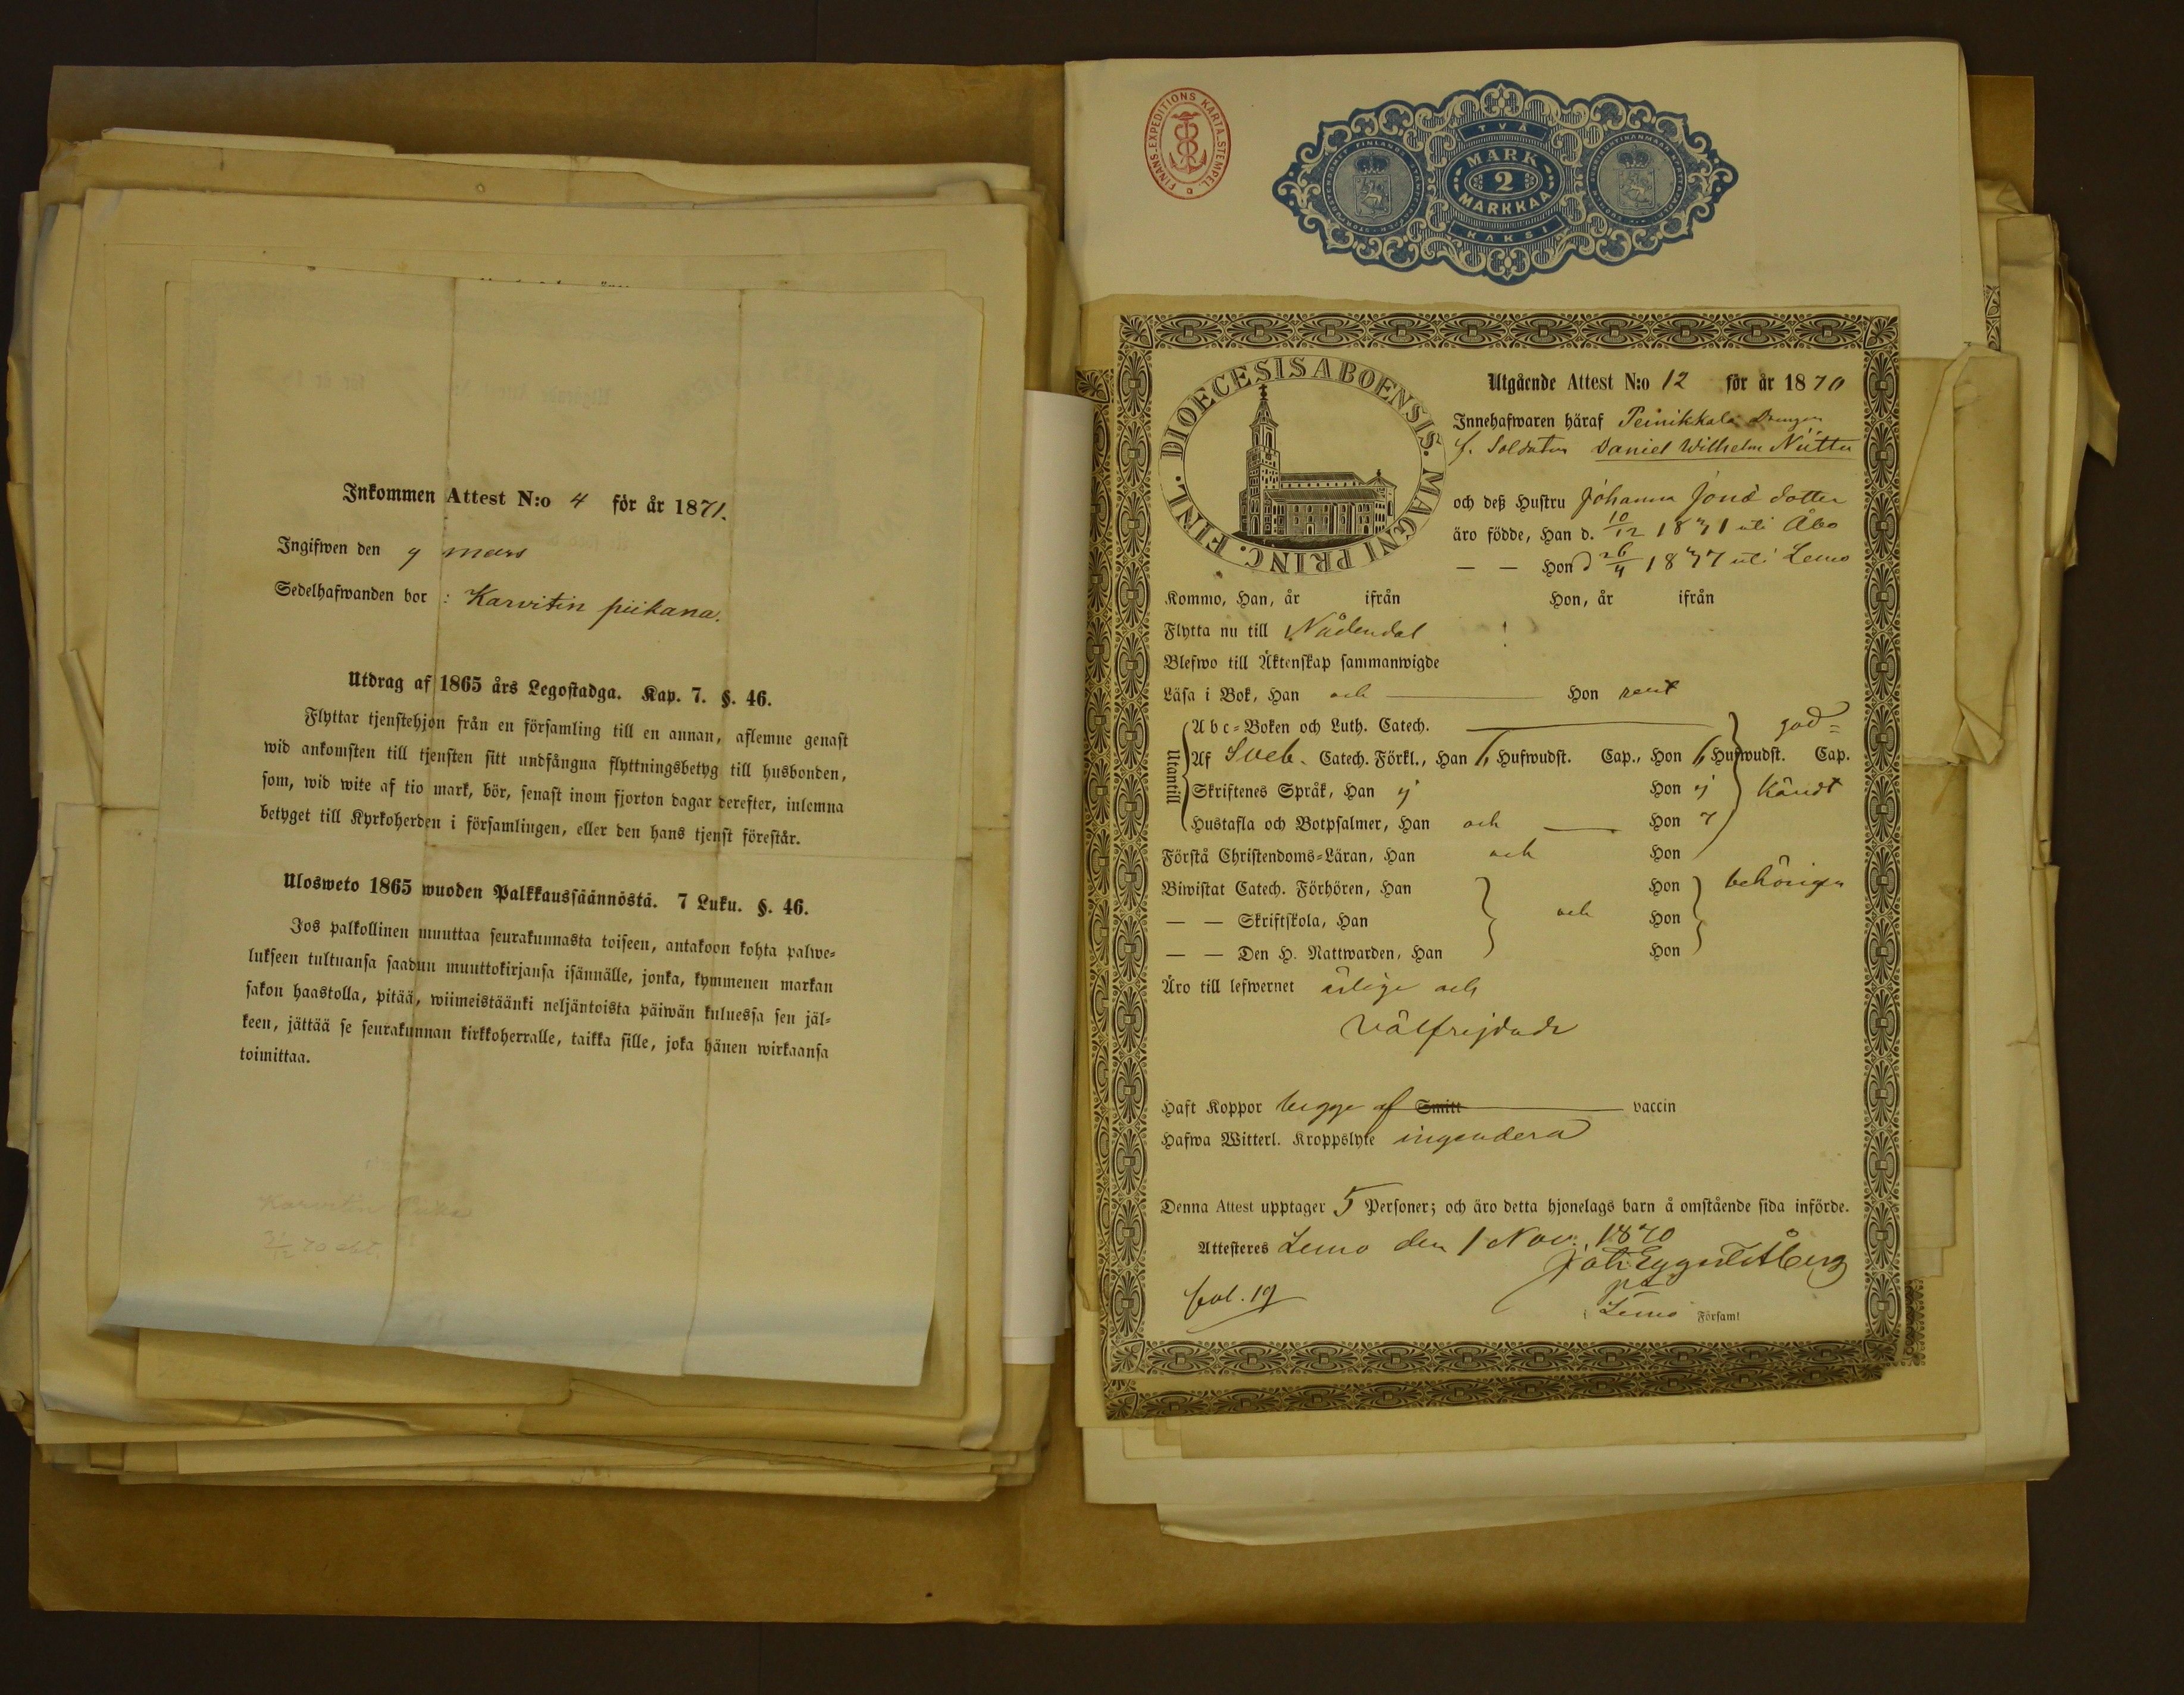 Inkommen Attest N:o 4 för år 1871.
Ingifwen den 9 mars
Sedelhafwanden bor : Karvitin piikana.
Utdrag af 1865 års Legostadga. Kap. 7. §. 46.
Flyttar tjenstehjon från en församling till en annan, aflemne genast
wid ankomsten till tjensten sitt undfångna flyttningsbetyg till husbonden,
som, wid wite af tio mark, bör, senast inom fjorton dagar derefter, inlemna
betyget till Kyrkoherden i församlingen, eller den hans tjenst förestår.
Ulosweto 1865 wuoden Palkkaussäännöstä. 7 Luku. §. 46.
Jos palkollinen muuttaa seurakunnasta toiseen, antakoon kohta palwe=
lukseen tultuansa saadun muuttokirjansa isännälle, jonka, kymmenen markan
sakon haastolla, pitää, wiimeistäänki neljäntoista päiwän kuluessa sen jäl=
keen, jättää se seurakunnan kirkkoherralle, taikka sille, joka hänen wirkaansa
toimittaa.
Karvitin Piika
FINANS-EXPEDITIONS KARTA.STEMPEL.
TVÅ
MARK
2
MARKKAA
KAKSI
DIOECESIS ABOENSIS. MAGNI PRINC. FINL.
Utgående Attest N:o 12 för år 1870
Innehafwaren häraf Peinikkala Drengen
f. Soldaten Daniel Wilhelm Niittu
och deß Hustru Johanna Jonas dotter
äro födde, Han d. 10/12 1831 uti Åbo
— — Hon d 26/4 1837 uti Lemo
Kommo, Han, år ifrån Hon, år ifrån
Flytta nu till Nådendal
Blefwo till Äktenskap sammanwigde
Läsa i Bok, Han och Hon rent
Utantill
Abc=Boken och Luth. Catech. god=
Af Sveb. Catech. Förkl., Han 6 Hufwudst. Cap., Hon 6 Hufwudst. Cap.
Skriftenes Språk, Han ej Hon ej kändt
Hustafla och Botpsalmer, Han och Hon 7
Förstå Christendoms=Läran, Han och Hon
Biwistat Catech. Förhören, Han Hon behörigen
— — Skriftskola, Han och Hon
— — Den H. Nattwarden, Han Hon
Äro till lefwernet ärlige och
välfrejdade
Haft Koppor begge af Smitt vaccin
Hafwa Witterl. Kroppslyte ingendera
Denna Attest upptager 5 Personer; och äro detta hjonelags barn å omstående sida införde.
Attesteras Lemo den 1 Nov. 1870
fol. 19
Lemo Församl